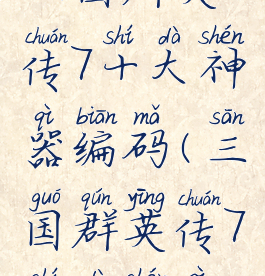 chuán shí dà shén
传7十大神
qì biān mǎ sān
器编码(三
guó qún yīng chuán
国群英传7